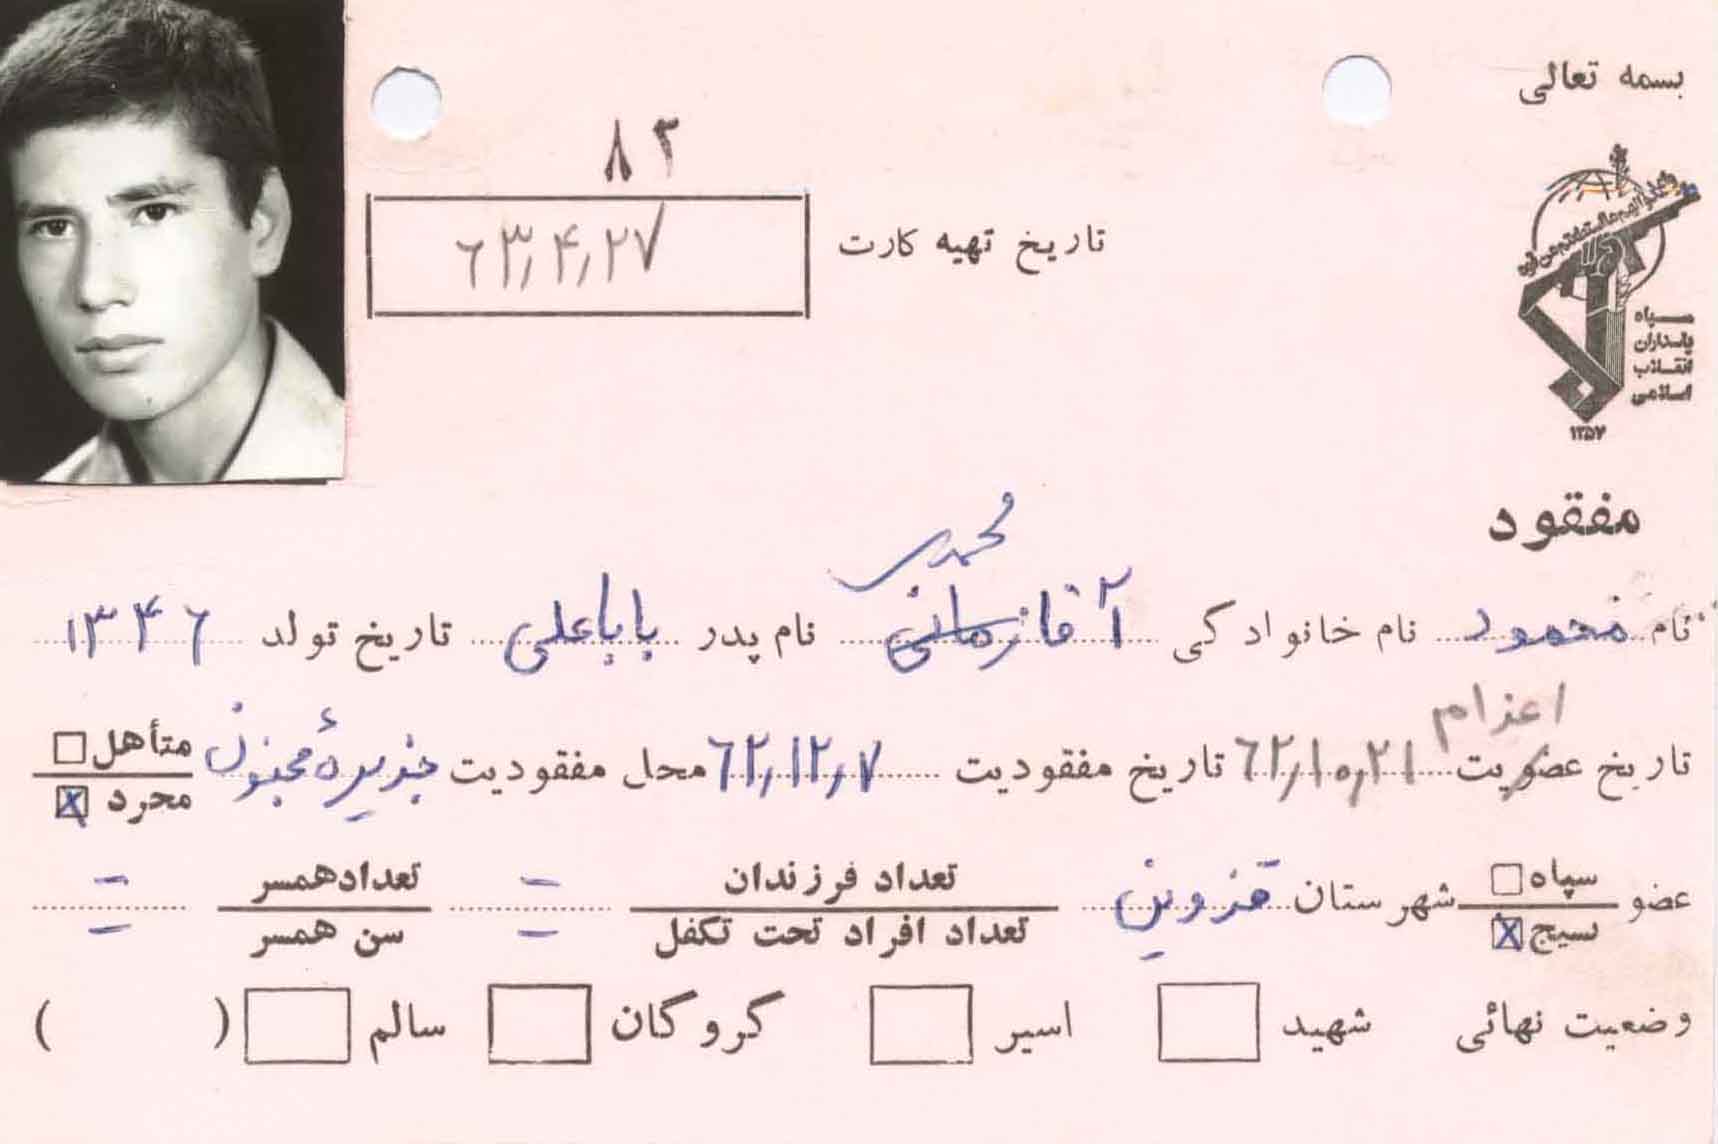 بسمه تعالی
۸۳
تاریخ تهیه کارت ۶۳٫۴٫۲۷
سپاه
پاسداران
انقلاب
اسلامی
۱۳۵۷
مفقود
محمدی
نام محمود نام خانوادگی آقازمانی نام پدر باباعلی تاریخ تولد ۱۳۴۶
اعزام
تاریخ عضویت ۶۲٫۱۰٫۲۱ تاریخ مفقودیت ۶۲٫۱۲٫۷ محل مفقودیت جزیرهٔ مجنون متأهل
مجرد
عضو سپاه شهرستان قزوین تعداد فرزندان = تعداد همسر =
بسیج تعداد افراد تحت تکفل سن همسر
وضعیت نهائی شهید اسیر گروگان سالم ( )